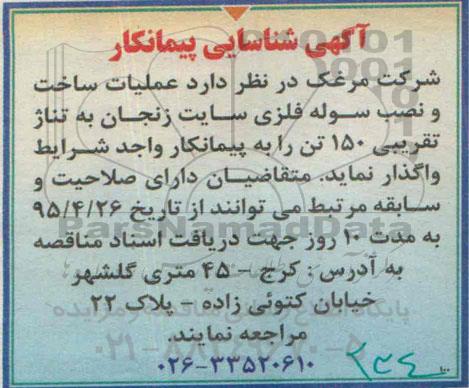 آگهی شناسایی پیمانکار
شرکت مرغک در نظر دارد عملیات ساخت
و نصب سوله فلزی سایت زنجان به تناژ
تقریبی ۱۵۰ تن را به پیمانکار واجد شرایط
واگذار نماید. متقاضیان دارای صلاحیت و
سابقه مرتبط می توانند از تاریخ ۹۵/۴/۲۶
به مدت ۱۰ روز جهت دریافت اسناد مناقصه
به آدرس : کرج - ۴۵ متری گلشهر
خیابان کتوئی زاده - پلاک ۲۲
مراجعه نمایند.
۰۲۶-۳۳۵۲۰۶۱۰
ParsNamadData
۱۰۰